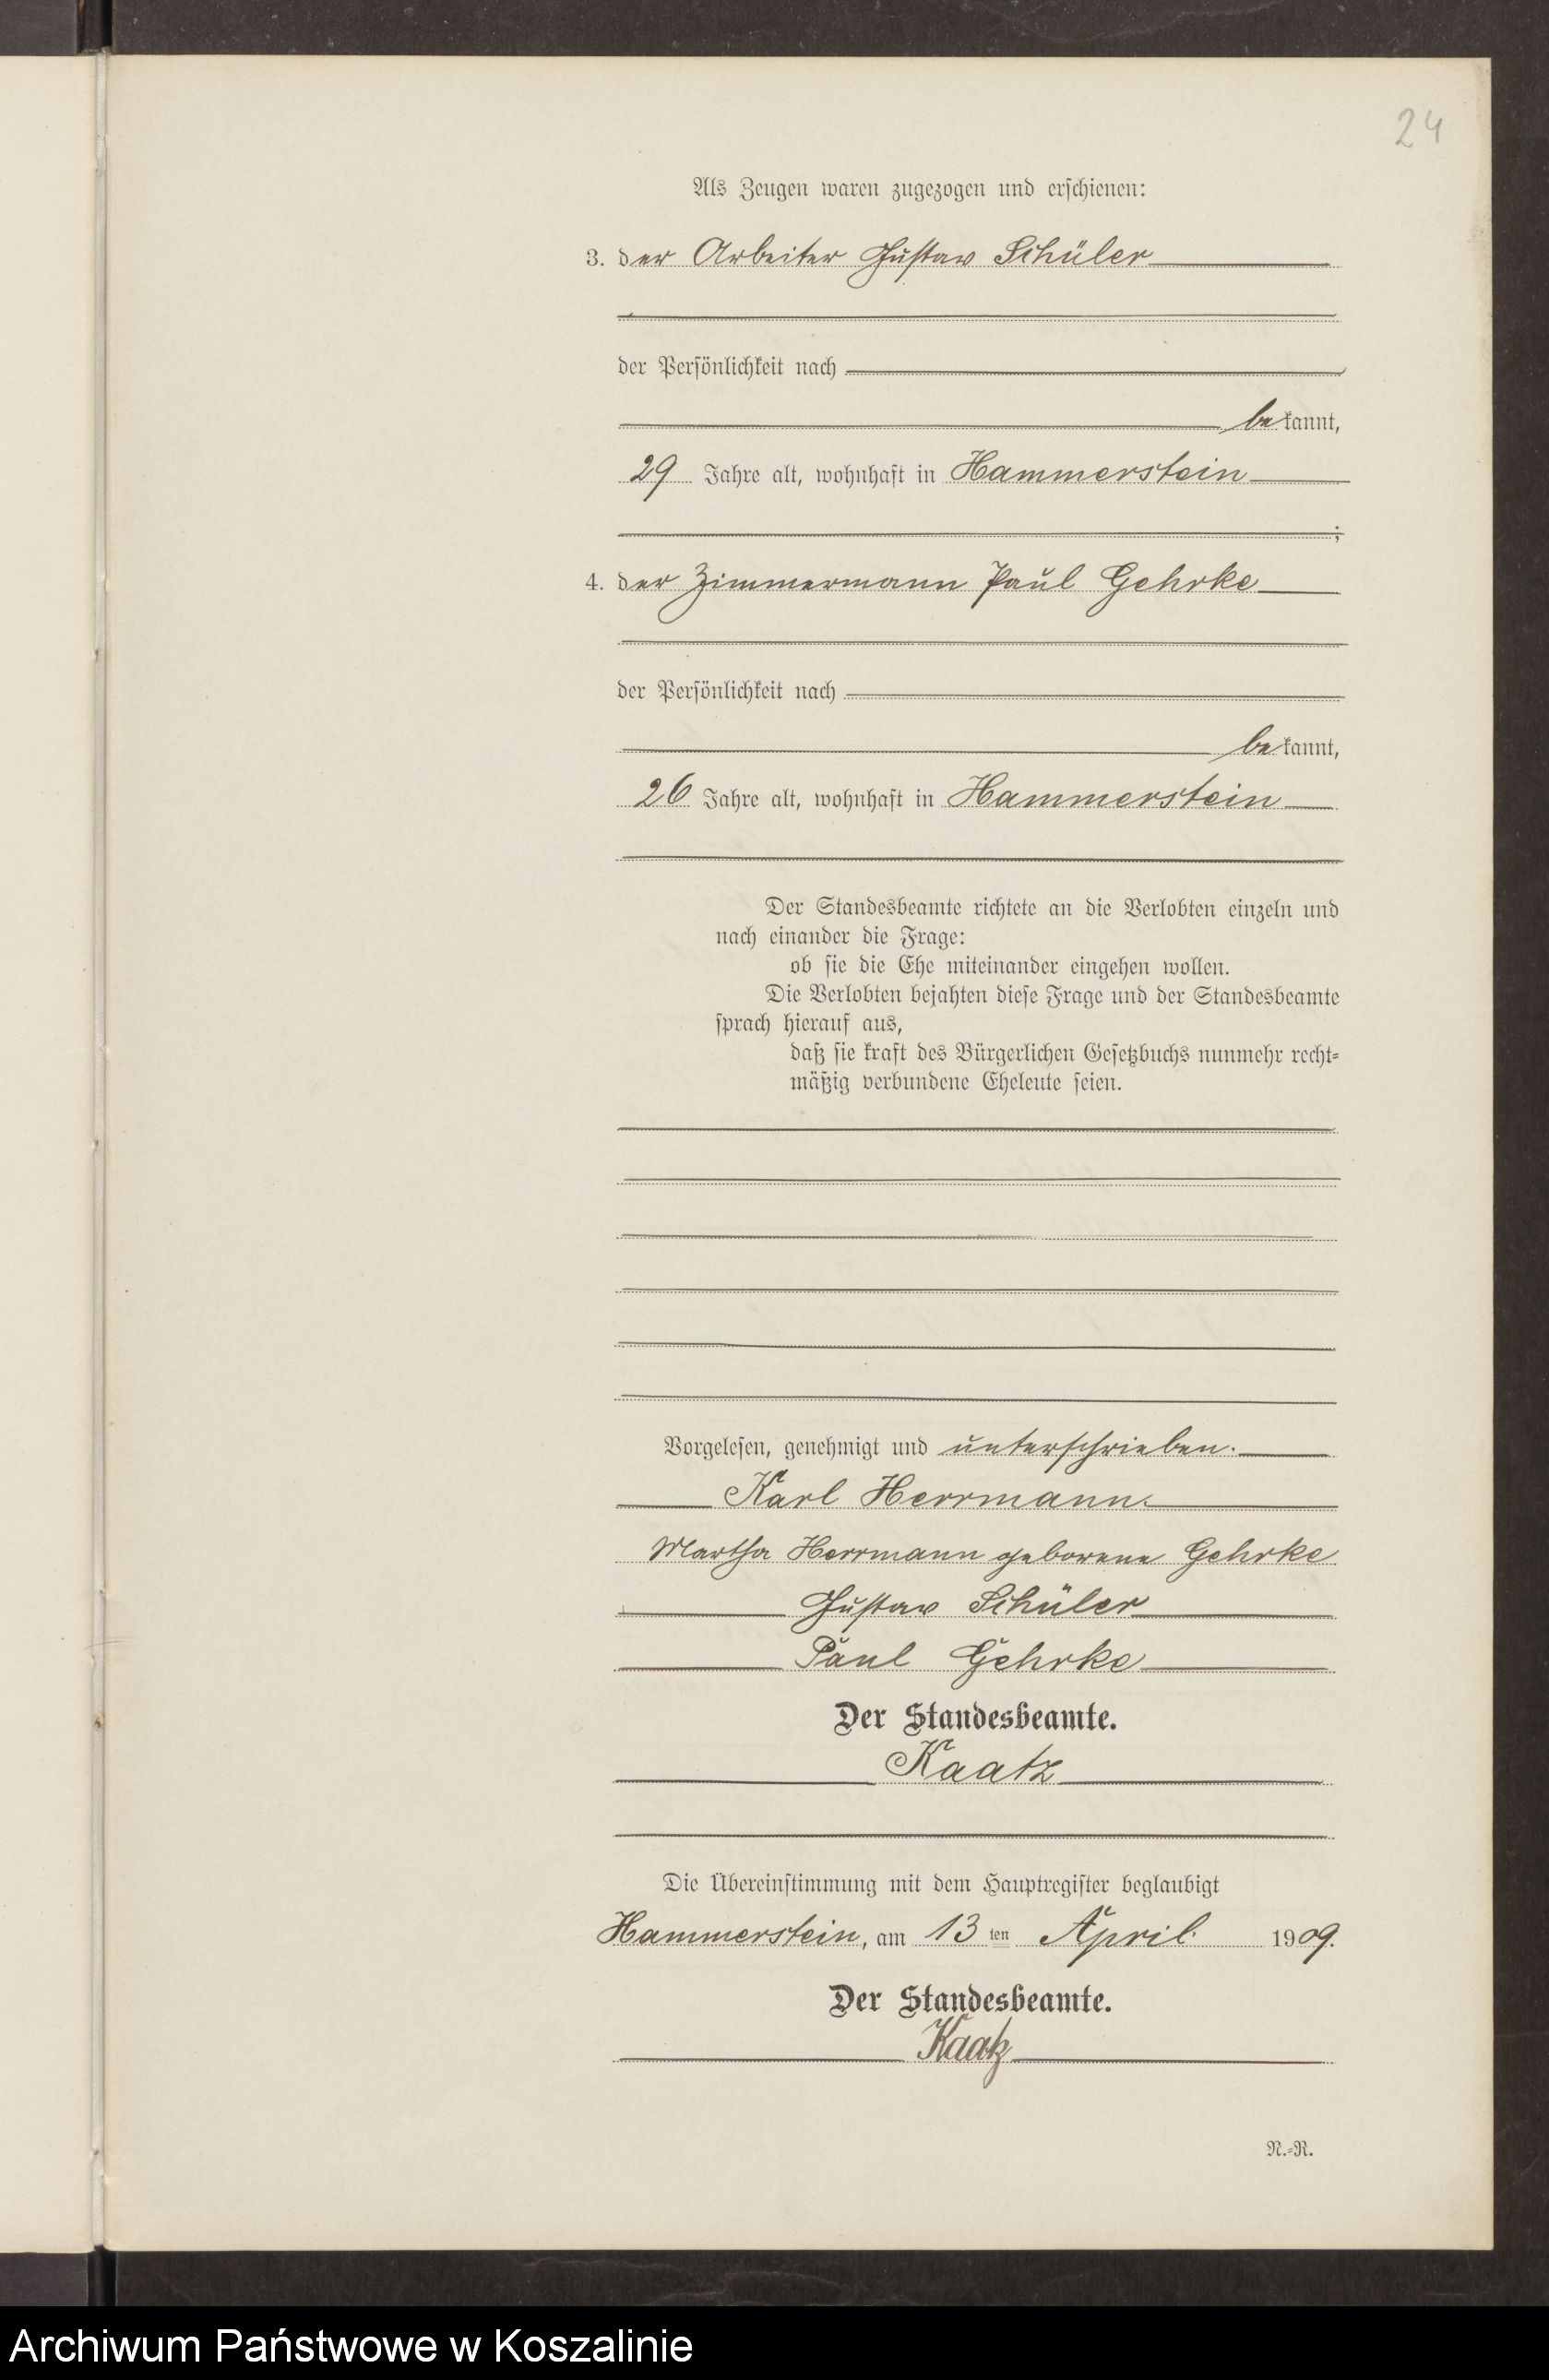 24
Als Zeugen waren zugezogen und erschienen:
3. der Arbeiter Gustav Schüler
der Persönlichkeit nach
bekannt,
29 Jahre alt, wohnhaft in Hammerstein
;
4. der Zimmermann Paul Gehrke
der Persönlichkeit nach
bekannt,
26 Jahre alt, wohnhaft in Hammerstein
Der Standesbeamte richtete an die Verlobten einzeln und
nach einander die Frage:
ob sie die Ehe miteinander eingehen wollen.
Die Verlobten bejahten diese Frage und der Standesbeamte
sprach hierauf aus,
daß sie kraft des Bürgerlichen Gesetzbuchs nunmehr recht-
mäßig verbundene Eheleute seien.
Vorgelesen, genehmigt und unterschrieben.
Karl Herrmann.
Martha Herrmann geborene Gehrke
Gustav Schüler
Paul Gehrke
Der Standesbeamte.
Kaatz
Die Übereinstimmung mit dem Hauptregister beglaubigt
Hammerstein, am 13ten April 1909.
Der Standesbeamte.
Kaatz
N.-R.
Archiwum Państwowe w Koszalinie